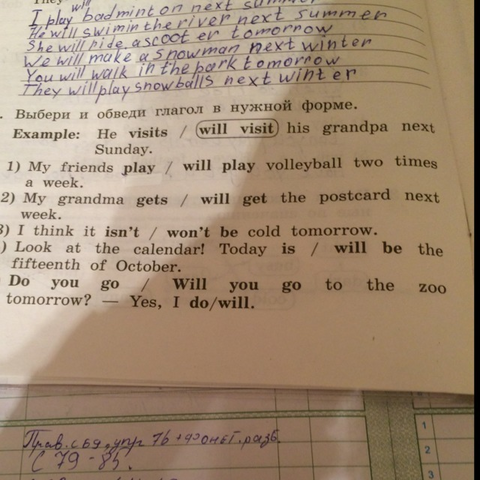 They
I play will badminton next summer
He will swim in the river next summer
She will ride a scooter tomorrow
We will make a snowman next winter
You will walk in the park tomorrow
They will play snowballs next winter
. Выбери и обведи глагол в нужной форме.
Example: He visits / will visit his grandpa next
Sunday.
1) My friends play / will play volleyball two times
a week.
2) My grandma gets / will get the postcard next
week.
3) I think it isn't / won't be cold tomorrow.
) Look at the calendar! Today is / will be the
fifteenth of October.
Do you go / Will you go to the zoo
tomorrow? — Yes, I do/will.
с 79 - 85.
1
2
3